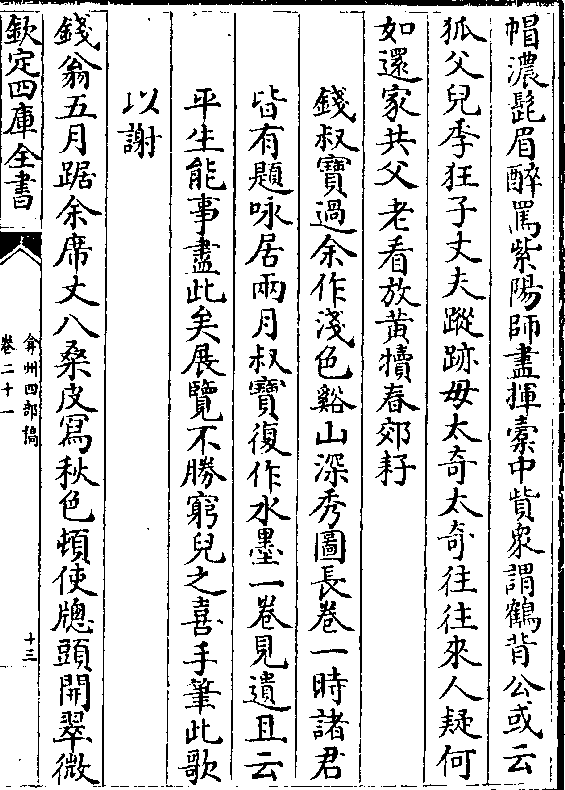 帽濃髭眉醉罵紫陽師盡揮橐中貲衆謂鶴背公或云
狐父兒季狂子丈夫蹤跡毋太奇太奇往往來人疑何
如還家共父老看放黃犢春郊耔
錢叔寶過余作淺色谿山深秀圖長卷一時諸君
皆有題咏居兩月叔寶復作水墨一卷見遺且云
平生能事盡此矣展覽不勝窮兒之喜手筆此歌
以謝
錢翁五月踞余席丈八桑皮寫秋色頓使牕頭開翠微
欽定四庫全書
弇州四部稿
卷二十一
十三